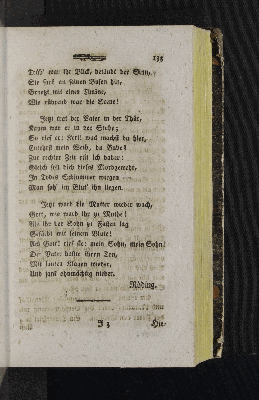 135
Trüb' war ihr Blick, betäubt der Sinn,
Sie sank an seinen Busen hin,
Gestützt mit einem
Wie rührend war die Scene!
Jetzt trat der Vater in der Thür,
Kaum war er in der Stube;
So rief er: Kerl! was machst du hier,
Entehrst mein Weib, du Bube!
Zur rechter Zeit ich dabei:
Gleich soll dich dieses Mordgewehr,
In Todes Schlummer wiegen
Man sah' im Blut' ihn liegen.
Jetzt ward die Mutter wieder wach,
Gott, wie ward ihr zu Muthe!
Als ihr der Sohn zu Füßen lag
Gefärbt mit seinem Blute!
Ach Gott! rief sie: mein Sohn, mein Sohn!
Der Vater hörte ihren Ton,
Mit lauten Klagen wieder,
Und sank ohnmächtig nieder.
Röding.
J 3
Hin-